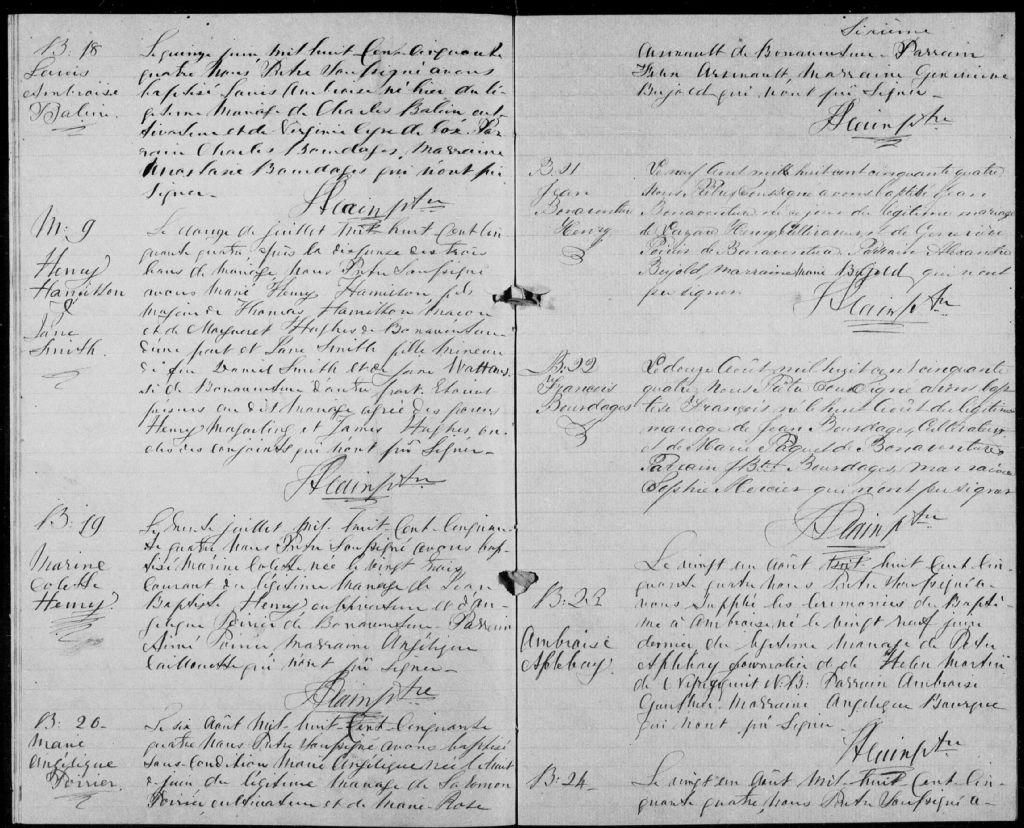 B: 18
Louis
Ambroise
Babin.
Le quinze juin, mil huit cent cinquante
quatre Nous Prêtre Soussigné avons
baptisé Louis Ambroise né hier du lé-
gitime Mariage de Charles Babin cul-
tivateur et de Virginie Cyr de Cox. Par-
rain Charles Bourdages, Marraine
Anastasie Bourdages qui n'ont pû
signer_
Alain ptre
M: 9
Henry
Hamilton
&
Jane
Smith.
Le douze de juillet mil huit cent cin-
quante quatre, après la dispense des trois
bans de mariage, Nous Prêtre Soussigné
avons Marié Henry Hamilton fils
majeur de Thomas Hamilton maçon
et de Margaret Hughes de Bonaventure
d'une part et Jane Smith fille mineure
de feu Daniel Smith et de Jane
de Bonaventure d'autre part. Etaient
présens au dit Mariage
Henry et James Hughes
des conjoints qui n'ont pû Signer_
Alain ptre
B: 19
Marine
Colette
Henry.
Le juillet, mil huit cent cinquan-
te quatre Nous Prêtre Soussigné avons bap-
tisé Marine Colette née le vingt trois
courant du légitime Mariage de Jean
Baptiste Henry cultivateur et d'An-
gélique Poirier de Bonaventure_ Parrain
Aimé Poirier Marraine Angélique
qui n'ont pû Signer_
Alain ptre
B: 20
Marie
Angélique
Poirier.
Le six Août mil huit cent cinquante
quatre Nous Prêtre Soussigné avons baptisé
sous Condition Marie Angélique née le huit
de juin du légitime Mariage de Salomon
Poirier cultivateur et de Marie Rose
Sixième
Arsenault de Bonaventure_ Parrain
Jean Arsenault, Marraine Geneviève
Bujold qui n'ont pû Signer_
Alain ptre
B 21
Jean
Bonaventure
Henry
Le neuf Août mil huit cent cinquante quatre
Nous Prêtre Soussigné avons baptisé Jean
Bonaventure né ce jour du légitime mariage
de Henry Cultivateur et de Geneviève
Poirier de Bonaventure Parrain Alexandre
Bujold, Marraine Marie Bujold qui n'ont
pu signer
Alain ptre
B: 22
François
Bourdages
Le douze Août mil huit cent cinquante
quatre Nous Prêtre Soussigné avons bap-
tisé François, né le huit Août du légitime
mariage de Jean Bourdages, Cultivateur
et de Marie Paquet de Bonaventure
Parrain J Bte Bourdages, marraine
Sophie Mercier qui n'ont pu signer
Alain ptre
B: 23
Ambroise
Aplebay.
Le vingt un Août mil huit cent cin-
quante quatre Nous Prêtre Soussigné a-
vons Supplée les Cérémonies du Baptê-
me à Ambroise né le vingt neuf juin
dernier du légitime Mariage de Peter
Aplebay journalier et de Helen Martin
de Nipisiguit N:B: Parrain Ambroise
Gauthier, Marraine Angélique Bourque
qui n'ont pû Signer
Alain ptre
B: 24_
Le vingt un Août mil huit cent cin-
quante quatre, Nous Prêtre Soussigné a-